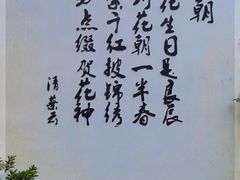 朝
花生日是良辰
到花朝一半春
紫千红披锦绣
点缀贺花神
清蔡云